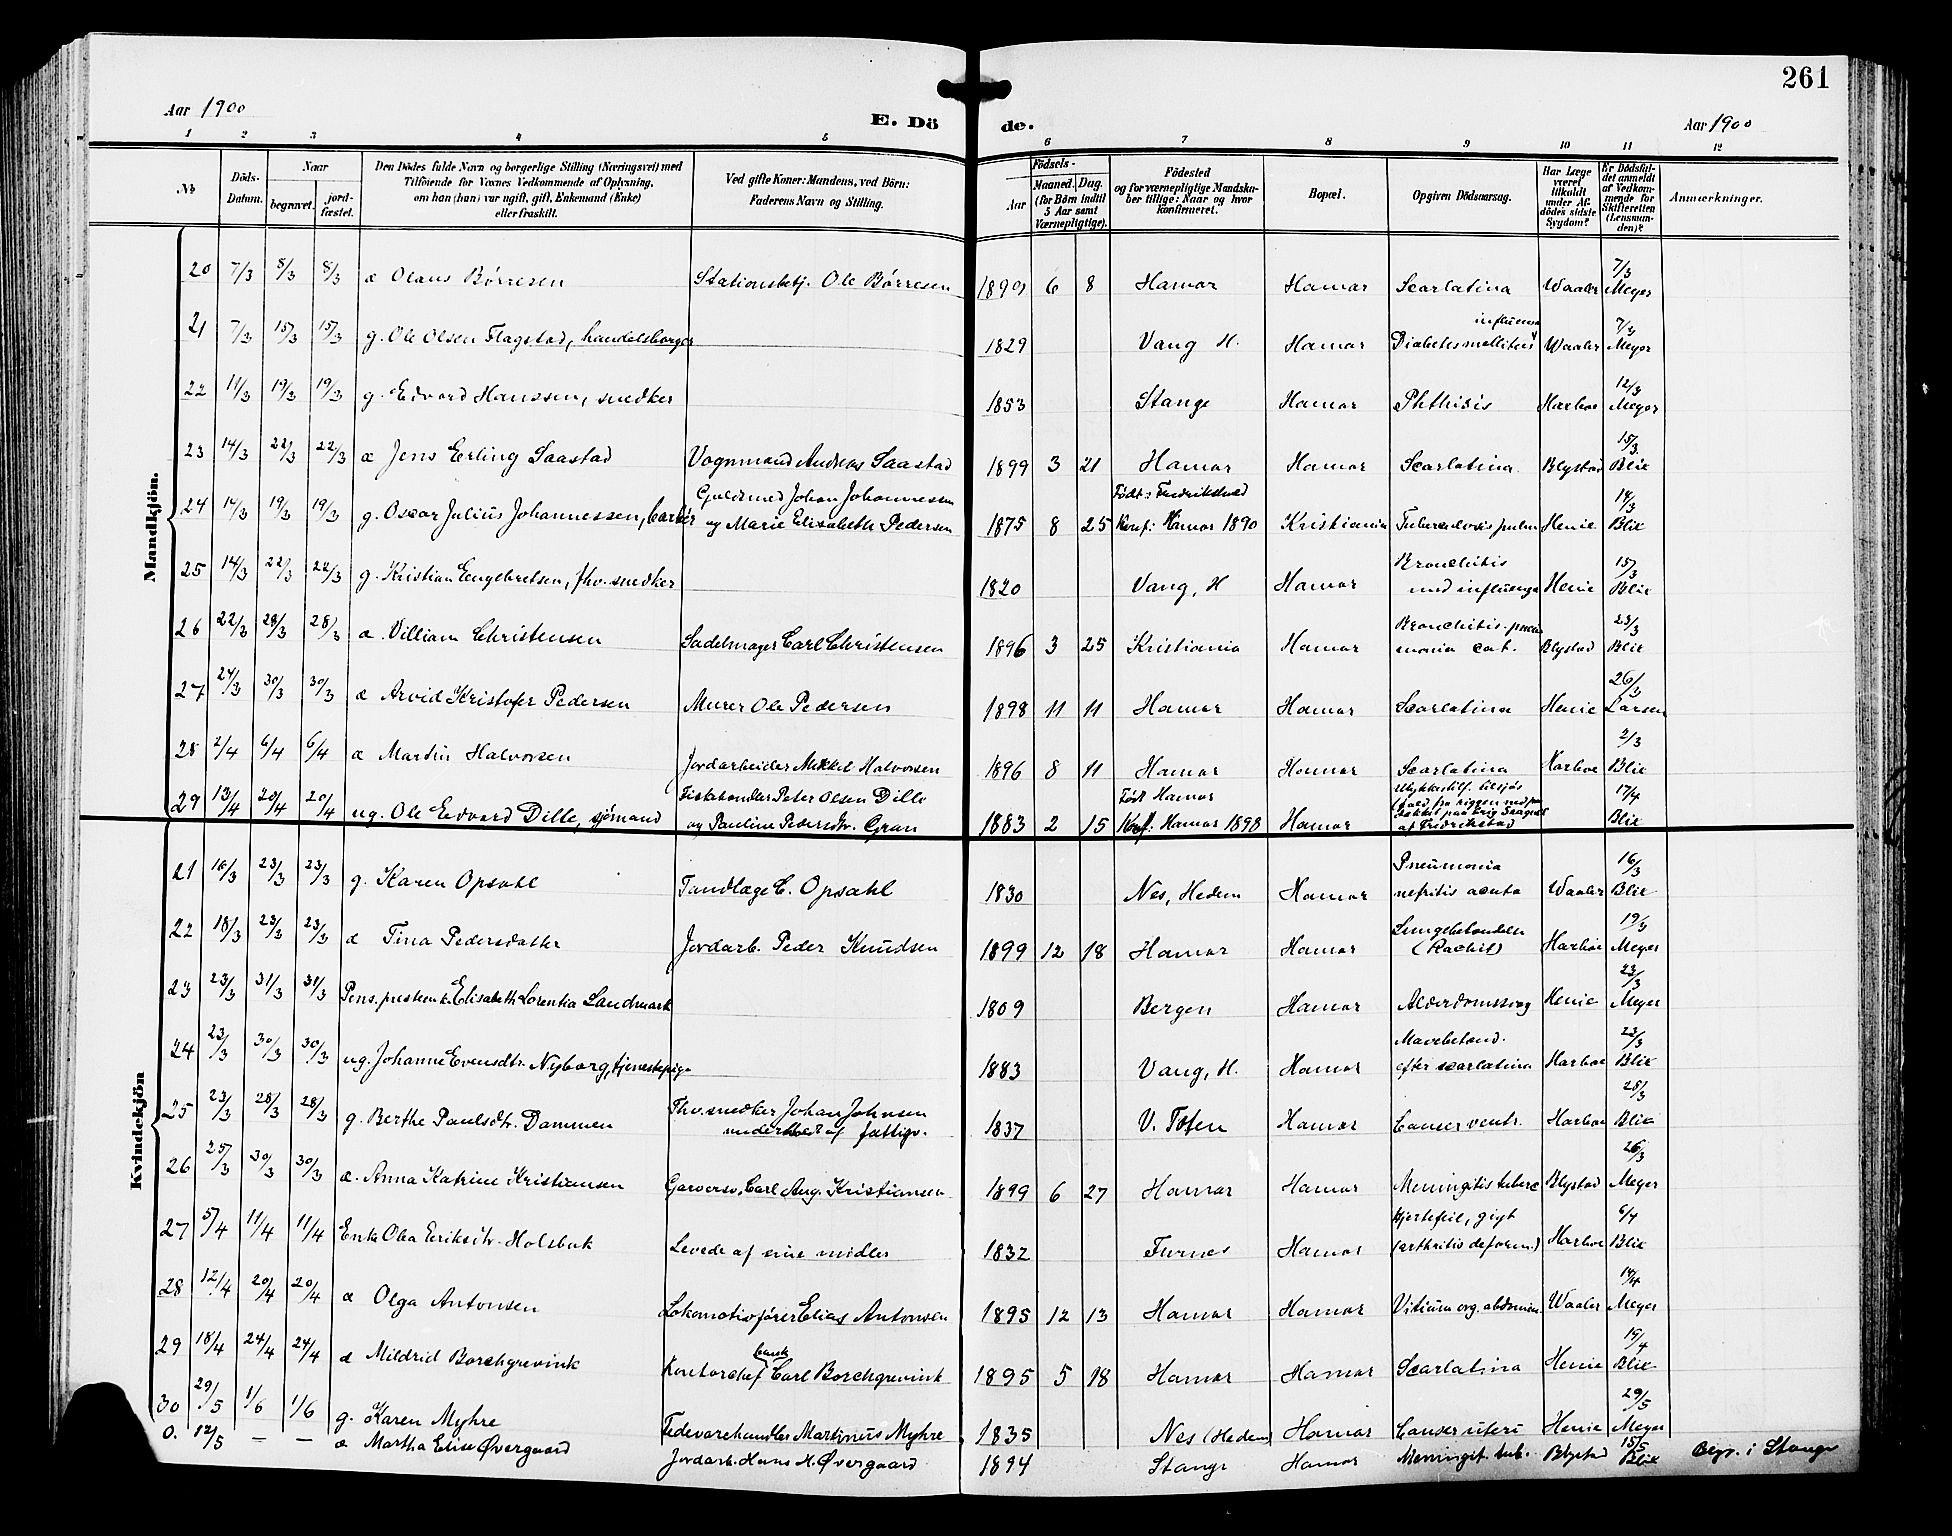 261
Aar 1900
E. Dö de.
Aar 1900
1 2 3 4 5 6 7 8 9 10 11 12
No
Döds-Datum.
Naar
begravet.
jordfæstet.
Den Dödes fulde Navn og borgerlige Stilling (Næringsvei) med
Tilföiende for Voxnes Vedkommende af Oplysning,
om han (hun) var ugift, gift, Enkemand (Enke)
eller fraskilt.
Ved gifte Koner: Mandens, ved Börn:
Faderens Navn og Stilling.
Födsels-
Aar
Maaned. Dag.
(for Börn indtil
5 Aar samt
Værnepligtige).
Födested
og for værnepligtige Mandskaber tillige: Naar og hvor
konfirmeret.
Bopæl.
Opgiven Dödsaarsag.
Har Læge været tilkaldt under Afdödes sidste Sygdom?
Er Dödsfaldet anmeldt af Vedkommende for Skifteretten (Lensmanden)?
Anmærkninger.
Mandkjön.
20 7/3 8/3 8/3 æ Olaus Børresen Stationsbetj. Ole Børresen 1899 6 8 Hamar Hamar Scarlatina Waaler 7/3 Meyer
21 7/3 15/3 15/3 g. Ole Olsen Flagstad, handelsborger 1829 Vang H. Hamar Diabetes mellitus influensa Waaler 7/3 Meyer
22 11/3 19/3 19/3 g. Edvard Hanssen, snedker 1853 Stange Hamar Phthisis Harboe 12/3 Meyer
23 14/3 22/3 22/3 æ Jens Erling Saastad Vognmand Andreas Saastad 1899 3 21 Hamar Hamar Scarlatina Blystad 15/3 Blix
24 14/3 19/3 19/3 g. Oscar Julius Johannessen, barbér Guldsmed Johan Johannessen
og Marie Elisabeth Pedersen 1875 8 25 Født: Fredrikstad
Konf: Hamar 1890 Kristiania Tuberculosis pulm Henie 14/3 Blix
25 14/3 22/3 22/3 g. Kristian Engebretsen, fhv. snedker 1820 Vang, H Hamar Bronchitis
med influenza Henie 15/3 Blix
26 22/3 28/3 28/3 æ. Villiam Christensen Sadelmager Carl Christensen 1896 3 25 Kristiania Hamar Bronchitis. pneumonia cat. Blystad 23/3 Blix
27 24/3 30/3 30/3 æ Arvid Kristofer Pedersen Murer Ole Pedersen 1898 11 11 Hamar Hamar Scarlatina Henie 26/3 Larsen
28 2/4 6/4 6/4 æ Martin Halvorsen Jordarbeider Mikkel Halvorsen 1896 8 11 Hamar Hamar Scarlatina Harboe 2/3 Blix
29 13/4 20/4 20/4 ug. Ole Edvard Dille, sjømand Fiskehandler Peter Olsen Dille
og Pauline Pedersdtr. Gran 1883 2 15 Født Hamar
Konf: Hamar 1898 Hamar Ulykkestilf. tilsjøs
(fald fra riggen ned paa
dækket paa brig
af Fredrikstad 17/4 Blix
Kvindekjön
21 16/3 23/3 23/3 g. Karen Opsahl Tandlæge C. Opsahl 1830 Nes, Hedem Hamar Pneumonia
nefritis acuta Waaler 16/3 Blix
22 18/3 23/3 23/3 æ Tina Pedersdatter Jordarb. Peder Knudsen 1899 12 18 Hamar Hamar Lungebetændelse
(Rachit) Harboe 19/3 Meyer
23 23/3 31/3 31/3 Pens. prestenk. Elisabeth Lorentza Landmark 1809 Bergen Hamar Alderdomssvag Henie 23/3 Meyer
24 23/3 30/3 30/3 ug. Johanne Evensdtr. Nyborg, tjenestepige 1883 Vang, H. Hamar Mavebetænd.
efter scarlatina Harboe 23/3 Blix
25 23/3 28/3 28/3 g. Berthe Paulsdtr. Dammen Fhv. snedker Johan Johnsen
underholdt af fattigv. 1837 V. Toten Hamar Cancer ventr. Harboe 28/3 Blix
26 25/3 30/3 30/3 æ. Anna Katrine Kristiansen Garversv. Carl Aug. Kristiansen 1899 6 27 Hamar Hamar Meningitis tuberc Blystad 26/3 Meyer
27 5/4 11/4 11/4 Enke Olea Eriksdtr. Holsbak Levede af sine midler 1832 Furnes Hamar Hjertefeil, gigt
(arthritis deform.) Harboe 6/4 Blix
28 12/4 20/4 20/4 æ Olga Antonsen Lokomotivfører Elias Antonsen 1895 12 13 Hamar Hamar Vitium org. abdomin. Waaler 14/4 Meyer
29 18/4 24/4 24/4 æ Mildrid Borchgrevink Kontorchef bank Carl Borchgrevink 1895 5 18 Hamar Hamar Scarlatina Henie 19/4 Blix
30 29/5 1/6 1/6 g. Karen Myhre Fedevarehandler Martinus Myhre 1835 Nes (Hedem Hamar Cancer uteri Henie 29/5 Meyer
0. 12/5 — — æ Martha Elise Øvergaard Jordarb. Hans M. Øvergaard 1894 Stange Hamar Meningit. tub. Blystad 15/5 Blix Begr. i Stange